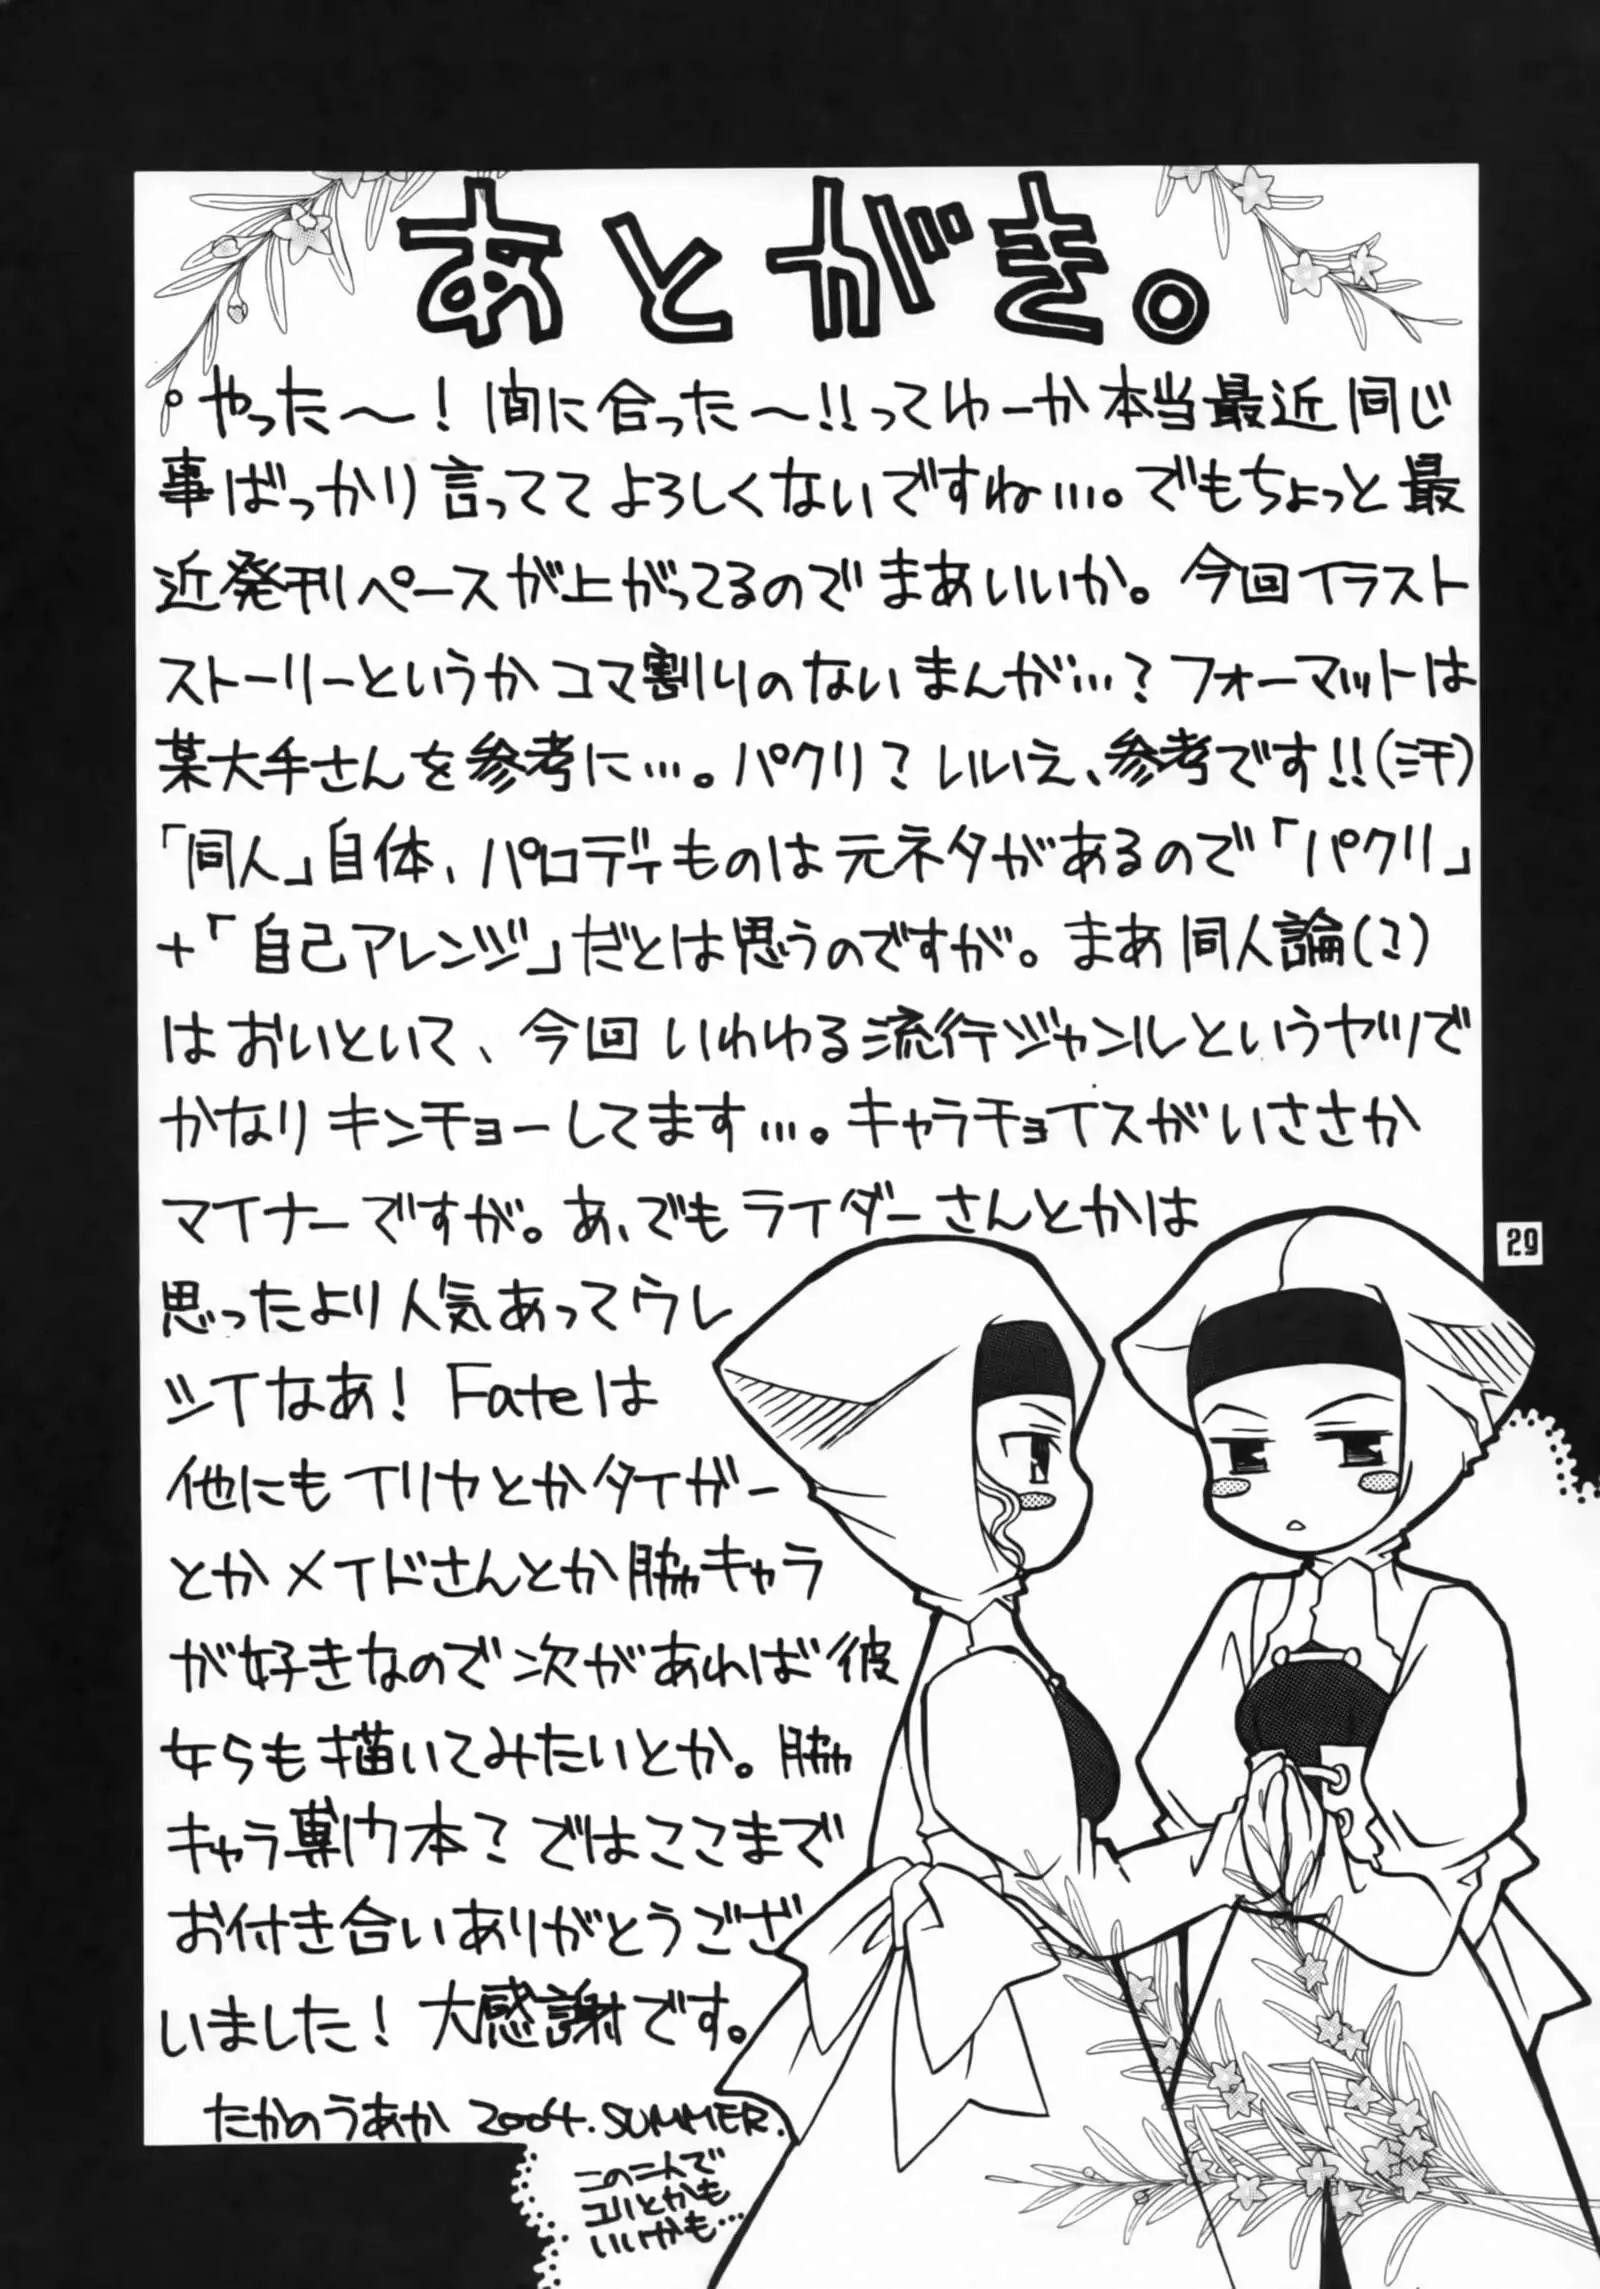 あとがき。
・やった～！間に合った～!!ってゆーか本当最近同じ
事ばっかり言っててよろしくないですね…。でもちょっと最
近発刊ペースが上がってるのでまあいいか。今回イラスト
ストーリーというかコマ割りのないまんが…？フォーマットは
某大手さんを参考に…。パクリ？いいえ、参考です!!(ミ汗)
「同人」自体、パロディものは元ネタがあるので「パクリ」
+「自己アレンジ」だとは思うのですが。まあ同人論(？)
はおいといて、今回いわゆる流行ジャンルというヤツで
かなりキンチョーしてます…。キャラチョイスがいささか
マイナーですが。あ、でもライダーさんとかは
思ったより人気あってウレ
シイなあ！Fateは
他にもイリヤとかタイガー
とかメイドさんとか脇キャラ
が好きなので次があれば彼
女らも描いてみたいとか。脇
キャラ専門本？ではここまで
お付き合いありがとうござ
いました！大感謝です。
たかのうあか 2004.SUMMER.
この二人で
ユリとかも
いいかも…
29